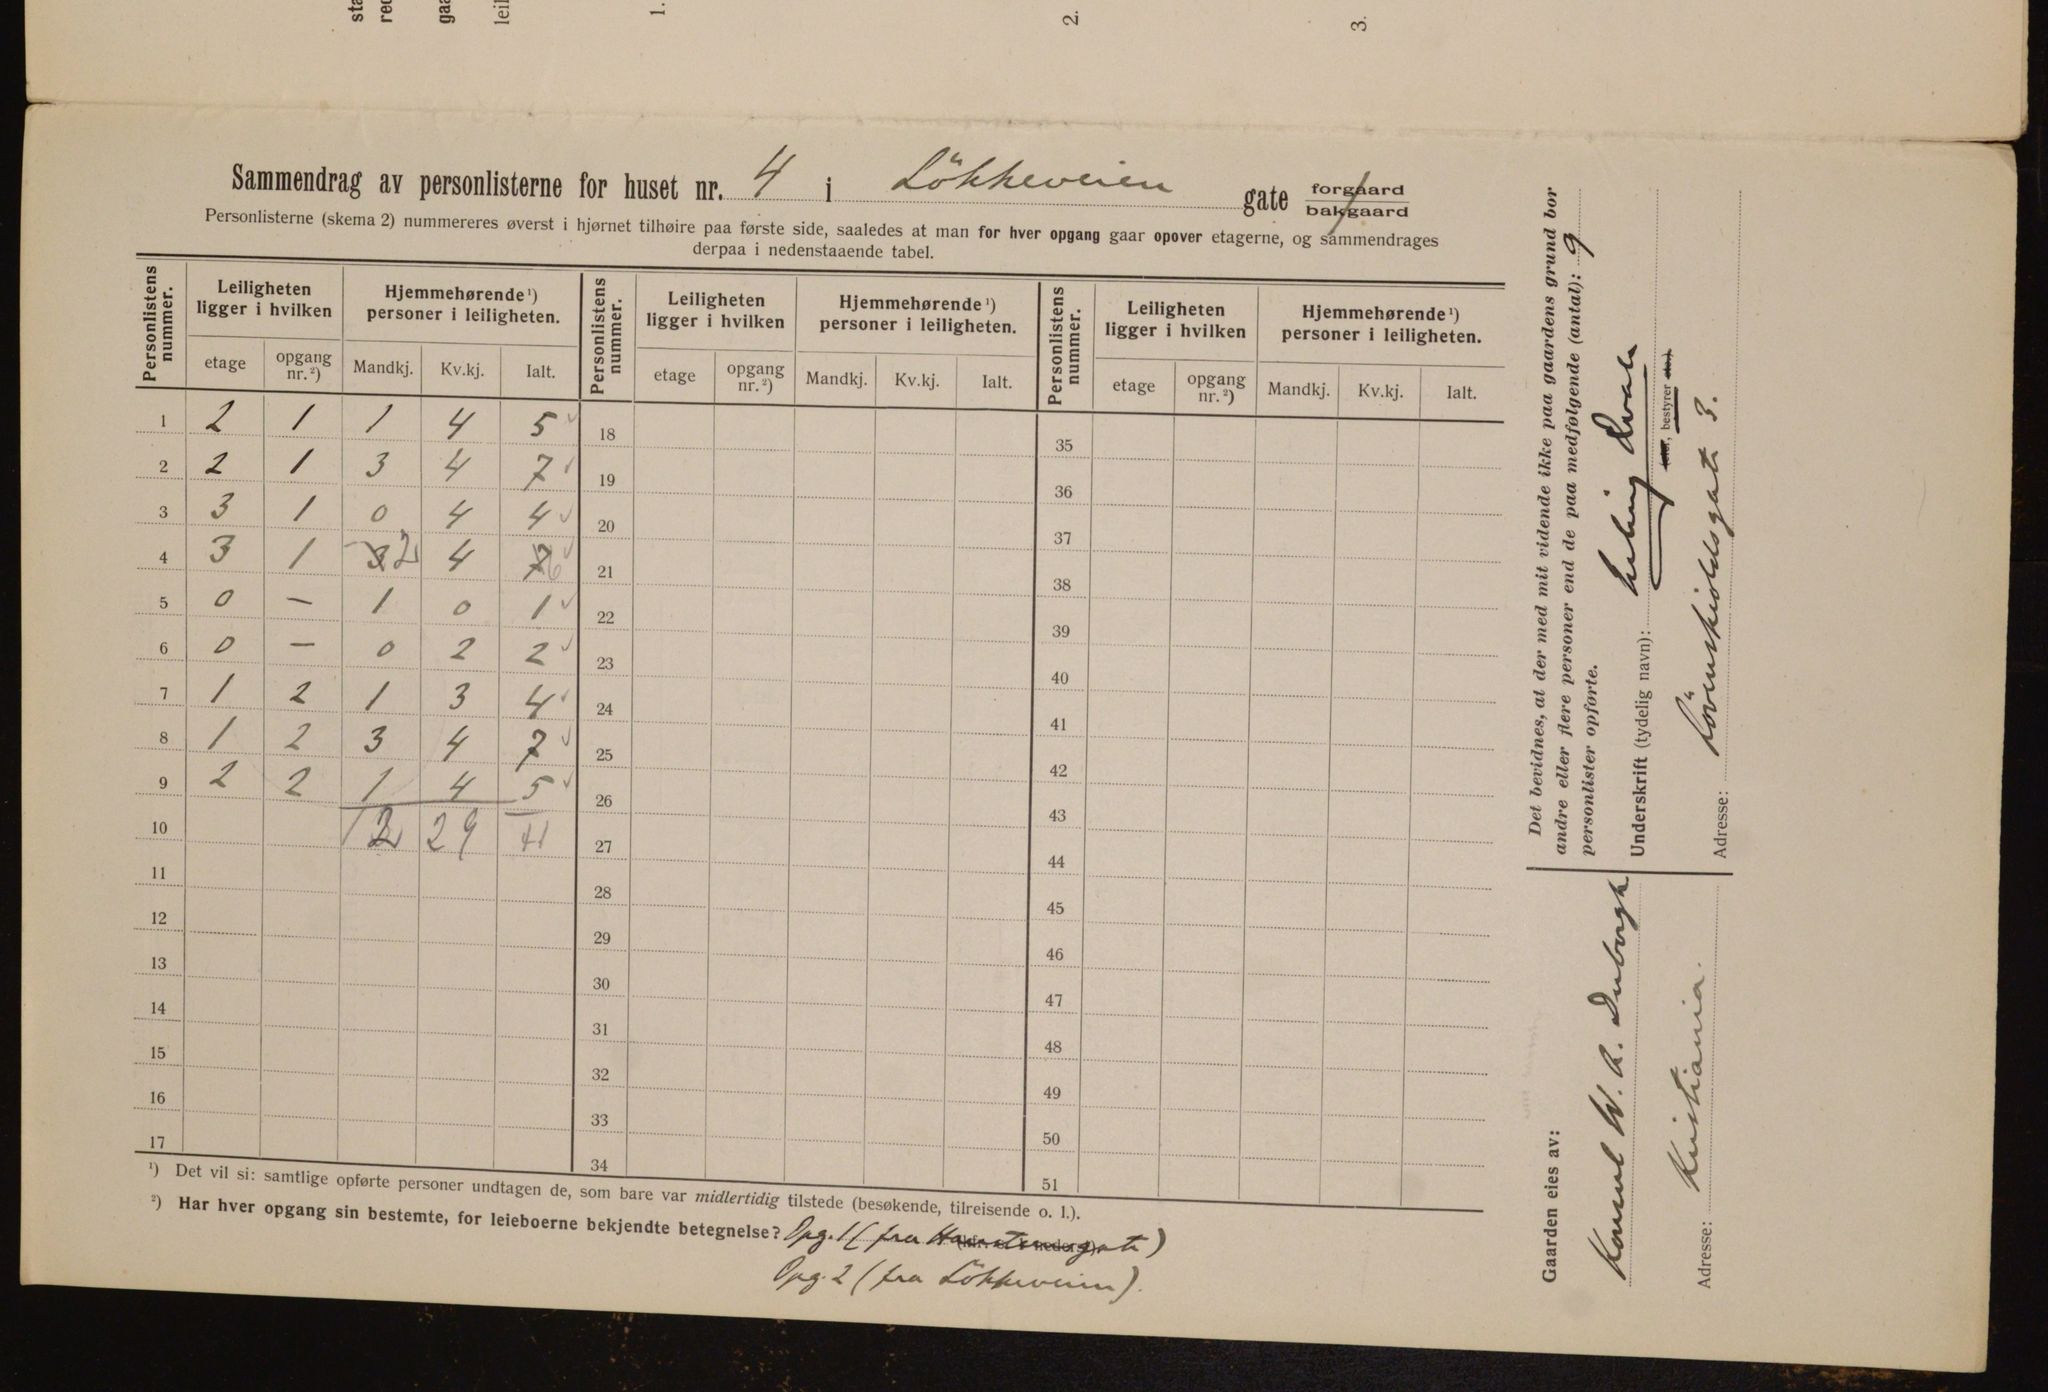 1.
2.
3.
Sammendrag av personlisterne for huset nr. 4 i Lökkeveien gate forgaard bakgaard
Personlisterne (skema 2) nummereres øverst i hjørnet tilhøire paa første side, saaledes at man for hver opgang gaar opover etagerne, og sammendrages
derpaa i nedenstaaende tabel.
Personlistens nummer. Leiligheten ligger i hvilken Hjemmehørende ¹) personer i leiligheten. Personlistens nummer. Leiligheten ligger i hvilken Hjemmehørende ¹) personer i leiligheten. Personlistens nummer. Leiligheten ligger i hvilken Hjemmehørende ¹) personer i leiligheten.
etage opgang nr. ²) Mandkj. Kv.kj. Ialt. etage opgang nr. ²) Mandkj. Kv.kj. Ialt. etage opgang nr. ²) Mandkj. Kv.kj. Ialt.
1 2 1 1 4 5 18 35
2 2 1 3 4 7 19 36
3 3 1 0 4 4 20 37
4 3 1 3 2 4 7 6 21 38
5 0 — 1 0 1 22 39
6 0 — 0 2 2 23 40
7 1 2 1 3 4 24 41
8 1 2 3 4 7 25 42
9 2 2 1 4 5 26 43
10 12 29 41 27 44
11 28 45
12 29 46
13 30 47
14 31 48
15 32 49
16 33 50
17 34 51
¹) Det vil si: samtlige opførte personer undtagen de, som bare var midlertidig tilstede (besøkende, tilreisende o. l.).
²) Har hver opgang sin bestemte, for leieboerne bekjendte betegnelse? Opg. 1 (fra
Opg. 2 (fra Lökkeveien).
Det bevidnes, at der med mit vidende ikke paa gaardens grund bor
andre eller flere personer end de paa medfølgende (antal): 9
personlister opførte.
Underskrift (tydelig navn):
eier, bestyrer
Adresse: Lövenskioldsgate 3.
Gaarden eies av:
Konsul W. A. Duborgh
Adresse: Kristiania.